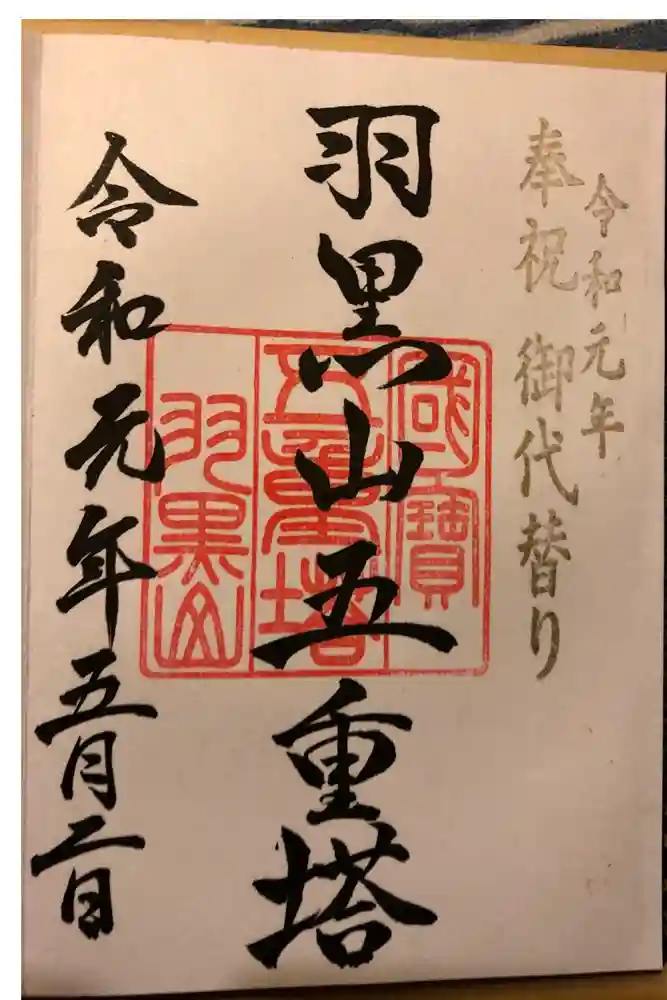 令和元年
奉祝 御代替り
羽黒山五重塔
令和元年五月二日
國寶
五重塔
羽黒山